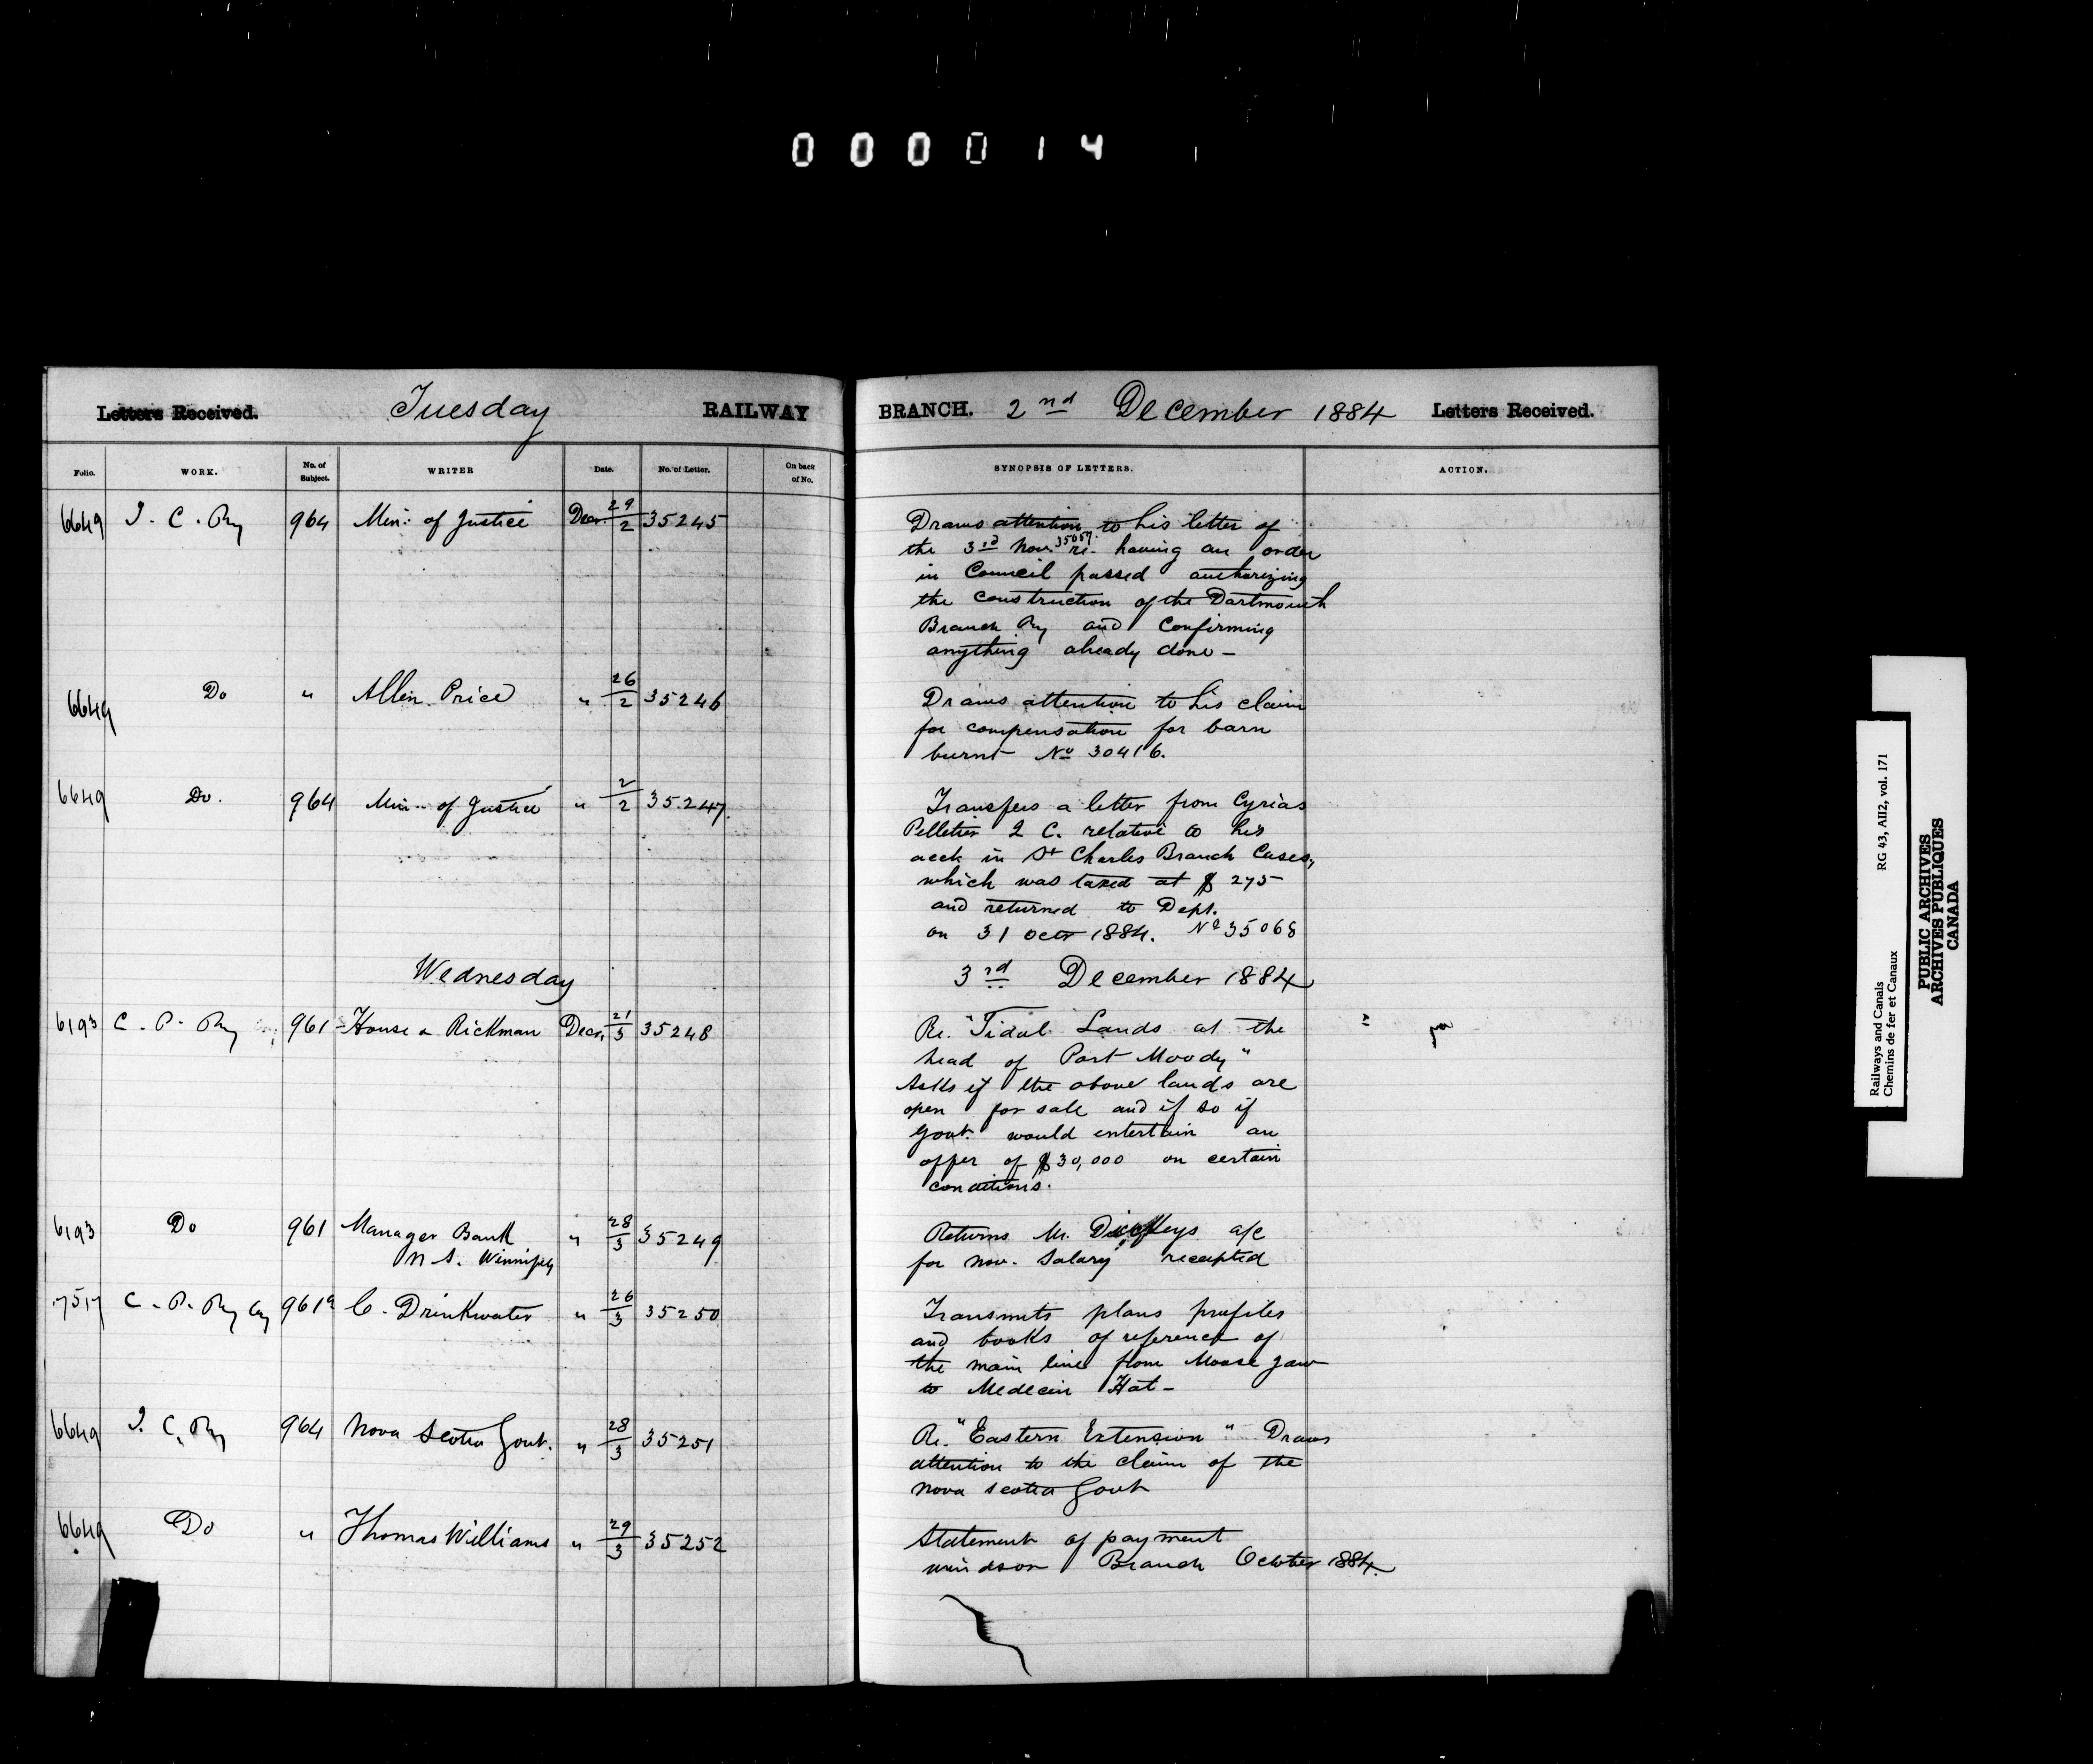 000014
Letters Received. Tuesday RAILWAY BRANCH. 2nd December 1884 Letters Received.
Folio. WORK. No. of Subject. WRITER Date. No. of Letter. On back of No. SYNOPSIS OF LETTERS. ACTION.
6649 I. C. Ry 964 Min: of Justice Decr. 29/2 35245 Draws attention to his letter of
the 3rd Nov. 35057 re. having an order
in Council passed authorizing
the construction of the Dartmouth
Branch Ry and Confirming
anything already done -
6649 Do " Allen Price " 26/2 35246 Draws attention to his claim
for compensation for barn
burnt No 30416.
6649 Do. 964 Min. of Justice " 2/2 35247. Transfers a letter from Cyrias
Pelletier Q C. relative to his
acct in St Charles Branch Cases,
which was taxed at $ 275
and returned to Dept.
on 31 Octr 1884. No 35068
Wednesday 3rd December 1884
6193 C. P. Ry 961 House & Rickman Decr. 21/3 35248 Re. "Tidal Lands at the
head of Port Moody"
Asks if the above lands are
open for sale and if so if
Govt. would entertain an
offer of $30,000 on certain
conditions.
6193 Do 961 Manager Bank " 28/3 35249 Returns Mr. a/c
N S. Winnipeg for Nov. Salary receipted
7517 C. P. Ry Cy 961a C. Drinkwater " 26/3 35250 Transmits plans profiles
and books of reference of
the main line from Moose Jaw
to Medecin Hat -
6649 I. C. Ry 964 Nova Scotia Govt. " 28/3 35251 Re. "Eastern Extension" Draws
attention to the claim of the
Nova Scotia Govt
6649 Do " Thomas Williams " 29/3 35252 Statement of payment
Windsor Branch October 1884.
Railways and Canals RG 43, AII2, vol. 171
Chemins de fer et Canaux
PUBLIC ARCHIVES
ARCHIVES PUBLIQUES
CANADA